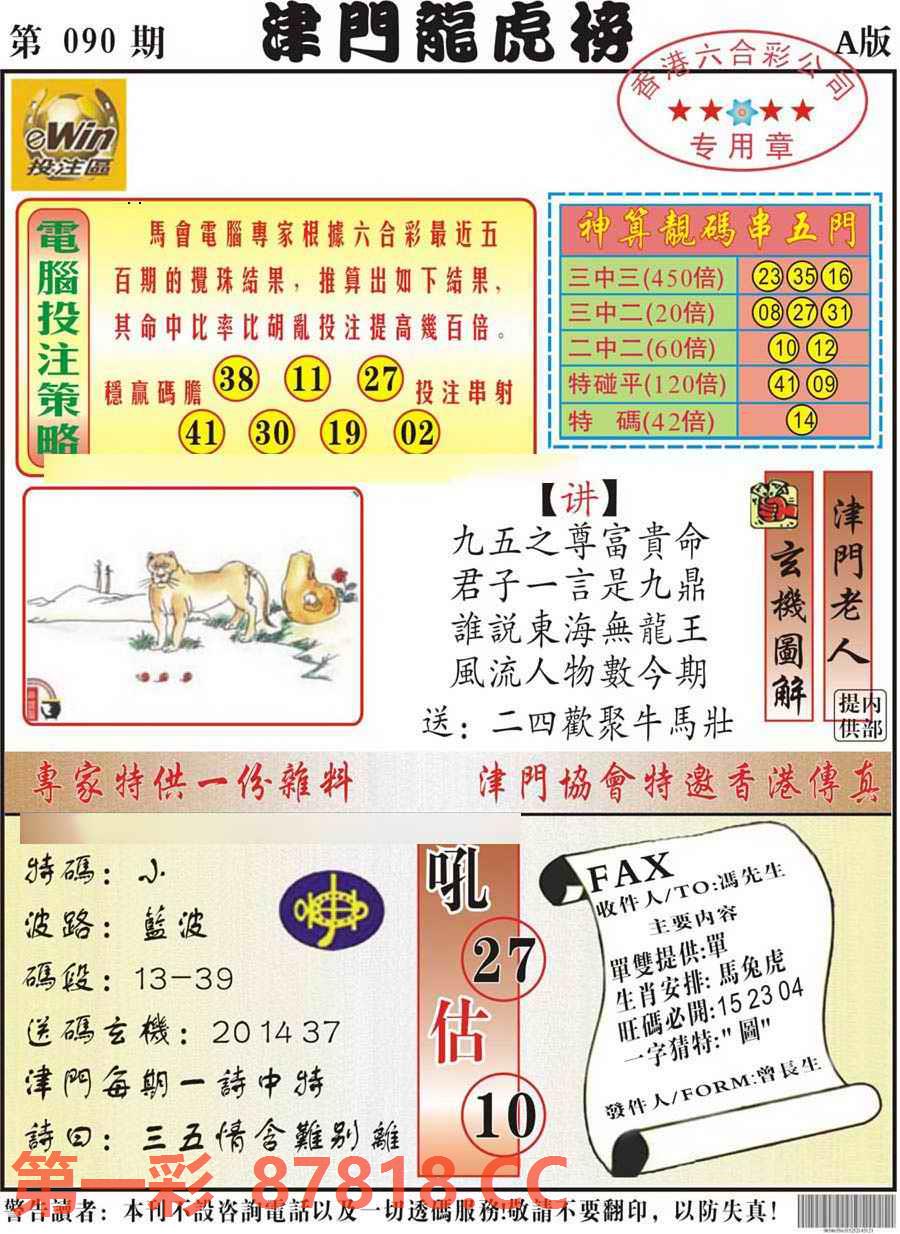 第 090 期
津門龍虎榜
A版
香港六合彩公司
专用章
eWin
投注區
電腦投注策略
馬會電腦專家根據六合彩最近五
百期的攪珠結果，推算出如下結果，
其命中比率比胡亂投注提高幾百倍。
穩贏碼膽 38 11 27 投注串射
41 30 19 02
神算靚碼串五門
三中三(450倍) 23 35 16
三中二(20倍) 08 27 31
二中二(60倍) 10 12
特碰平(120倍) 41 09
特 碼(42倍) 14
【讲】
九五之尊富貴命
君子一言是九鼎
誰説東海無龍王
風流人物數今期
送：二四歡聚牛馬壯
玄機圖解
津門老人
提供
内部
專家特供一份雜料
津門協會特邀香港傳真
特碼：小
波路：藍波
碼段：13-39
送碼玄機：20 14 37
津門每期一詩中特
詩曰：三五情含難别離
吼
27
估
10
FAX
收件人/TO:馮先生
主要内容
單雙提供:單
生肖安排: 馬兔虎
旺碼必開:15 23 04
一字猜特:"圖"
發件人/FORM:曾長生
第一彩 87818.CC
警告讀者：本刊不設咨詢電話以及一切透碼服務!敬請不要翻印，以防失真！